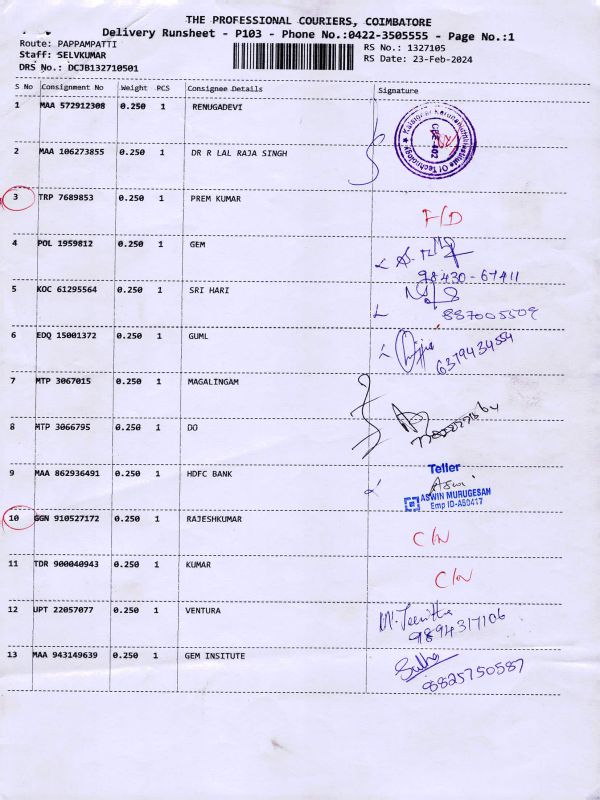 THE PROFESSIONAL COURIERS, COIMBATORE
Delivery Runsheet - P103 - Phone No.:0422-3505555 - Page No.:1
Route: PAPPAMPATTI
Staff: SELVKUMAR
DRS No.: DCJB132710501
RS No.: 1327105
RS Date: 23-Feb-2024
S No Consignment No Weight PCS Consignee Details Signature
1 MAA 572912308 0.250 1 RENUGADEVI
2 MAA 106273855 0.250 1 DR R LAL RAJA SINGH
3 TRP 7689853 0.250 1 PREM KUMAR
F/D
4 POL 1959812 0.250 1 GEM
98430-67411
5 KOC 61295564 0.250 1 SRI HARI
887005509
6 EDQ 15001372 0.250 1 GUML
6379434554
7 MTP 3067015 0.250 1 MAGALINGAM
8 MTP 3066795 0.250 1 DO
9 MAA 862936491 0.250 1 HDFC BANK
Teller
ASWIN MURUGESAN
Emp ID-A50417
10 GGN 910527172 0.250 1 RAJESHKUMAR
C/N
11 TDR 900040943 0.250 1 KUMAR
C/N
12 UPT 22057077 0.250 1 VENTURA
9894317106
13 MAA 943149639 0.250 1 GEM INSITUTE
Sudha
8825750587